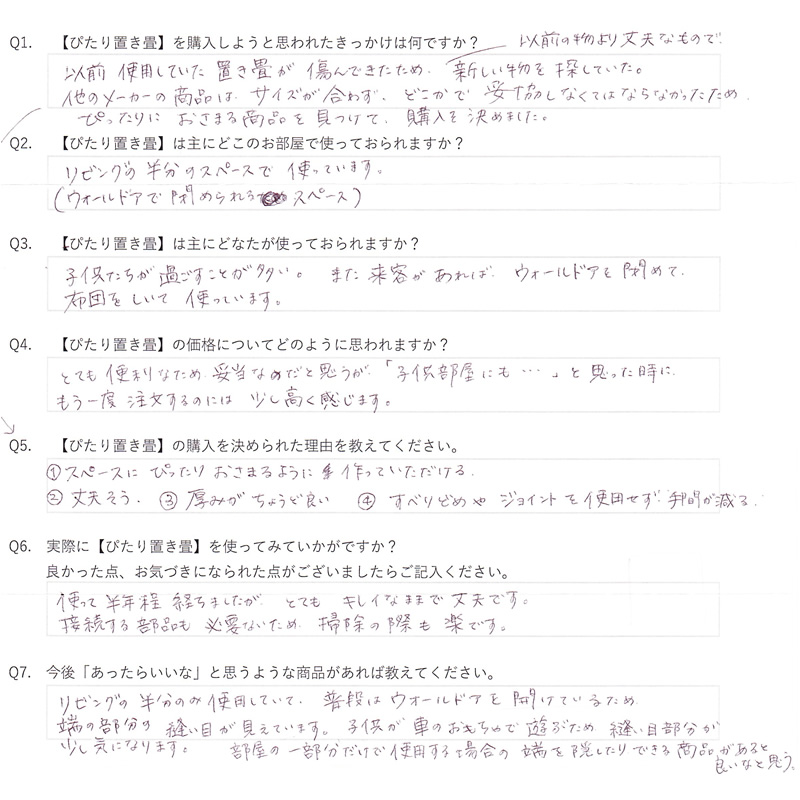 Q1. 【ぴたり置き畳】を購入しようと思われたきっかけは何ですか?
以前の物より丈夫なもので
以前 使用していた 置き畳が 傷んできたため、新しい物を 探していた。
他のメーカーの商品は、サイズが合わず、どこかで 妥協しなくてはならなかったため、
ぴったりに おさまる商品を 見つけて、購入を決めました。
Q2. 【ぴたり置き畳】は主にどこのお部屋で使っておられますか?
リビングの 半分のスペースで 使っています。
(ウォールドアで 閉められる スペース)
Q3. 【ぴたり置き畳】は主にどなたが使っておられますか?
子供たちが 過ごすことが多い。 また 来客が あれば、ウォールドアを 閉めて、
布団を しいて 使っています。
Q4. 【ぴたり置き畳】の価格についてどのように思われますか?
とても 便利なため、妥当なのだと思うが、「子供部屋にも…」と 思った時に、
もう一度 注文するのには 少し高く感じます。
Q5. 【ぴたり置き畳】の購入を決められた理由を教えてください。
①スペースに ぴったり おさまるように 作っていただける。
② 丈夫そう。 ③ 厚みが ちょうど良い ④ すべりどめや ジョイントを使用せず、手間が減る。
Q6. 実際に【ぴたり置き畳】を使ってみていかがですか?
良かった点、お気づきになられた点がございましたらご記入ください。
使って 半年程 経ちましたが、とても キレイなままで 丈夫です。
接続する部品も 必要ないため、掃除の際も 楽です。
Q7. 今後「あったらいいな」と思うような商品があれば教えてください。
リビングの 半分のみ使用していて、普段は ウォールドアを 開けているため、
端の部分の 縫い目が見えています。子供が 車のおもちゃで 遊ぶため、縫い目部分が
少し気になります。 部屋の一部分だけで使用する場合の 端を隠したりできる商品があると
良いなと思う。